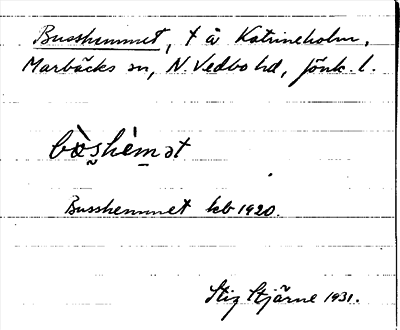 Busshemmet, t å Katrineholm,
Marbäcks sn, N. Vedbo hd, Jönk. l.
bòshèmət
Busshemmet kb 1920.
Stig Stjärne 1931.